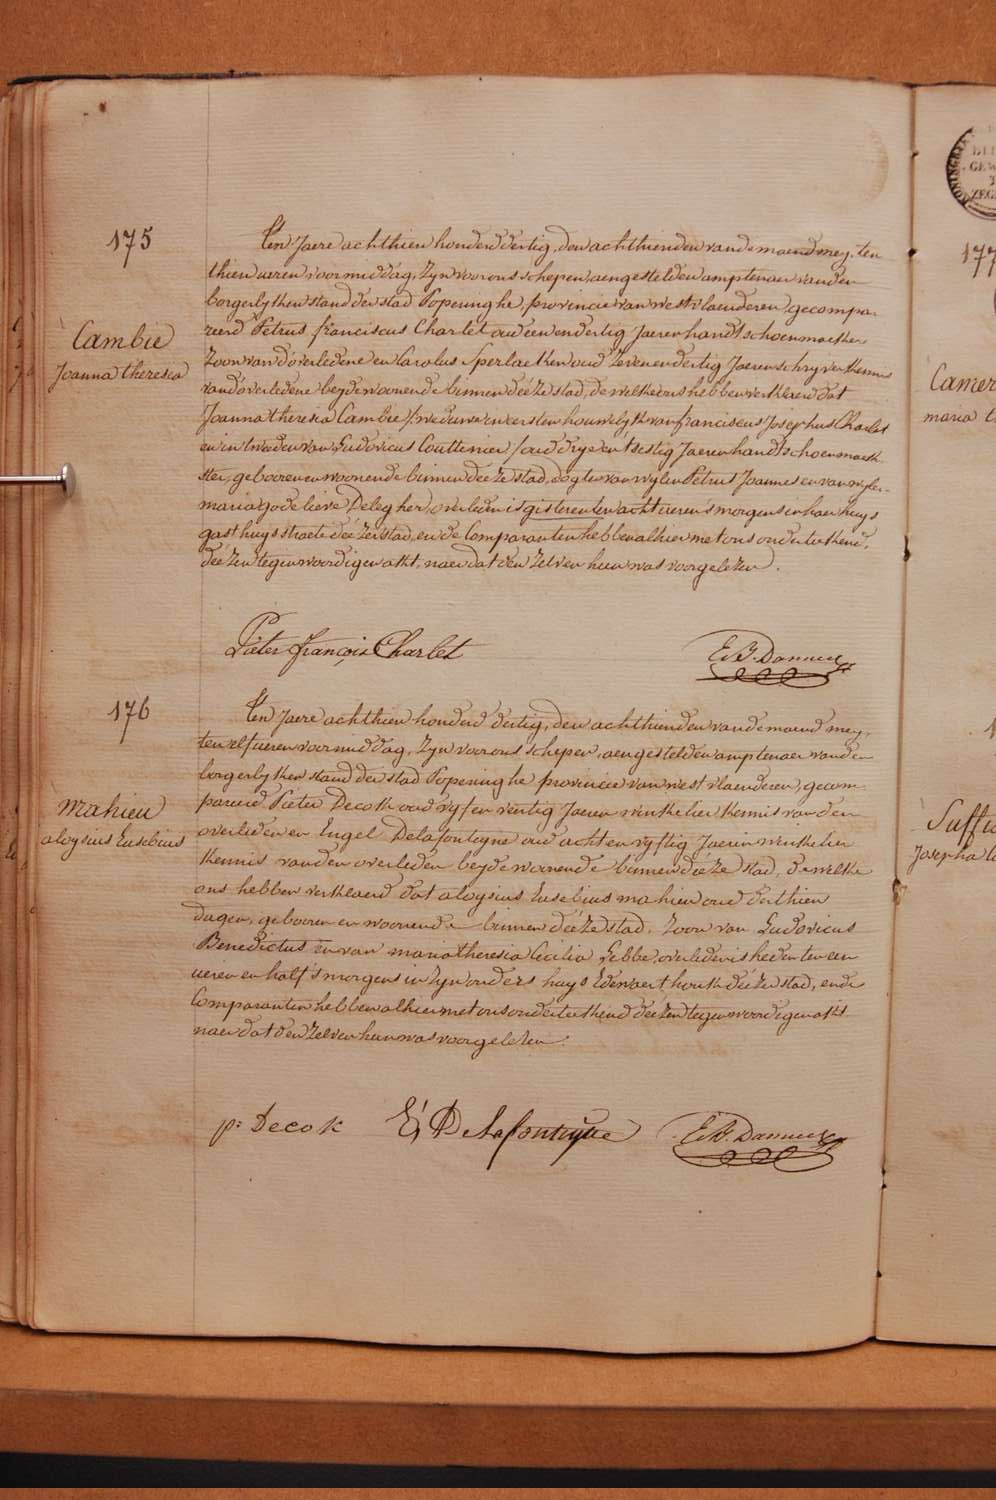 175
Cambie
Joanna theresia
Ten Jaere achthien honderd dertig, den achthienden van de maend mey, ten
thien ueren voormiddag, zyn voor ons schepen, aengestelden amptenaer van den
borgerlyken stand der stad Poperinghe, provincie van westvlaenderen, gecompa-
reerd Petrus franciscus Charlet oud een en dertig Jaeren handtschoenmaeker
Zoon van d'overledene en Carolus Sperlaeken oud Zeven en dertig Jaeren schryver kennis
van d'overledene beyde woonende binnen déeze stad, de welke ons hebben verklaerd dat
Joanna theresia Cambie /: weduwe in eersten houwelyk van franciscus Josephus Charlet
en in tweeden van Ludovicus Couttenier / oud drye en tsestig Jaeren handtschoenmaek-
ster, gebooren en woonende binnen déeze stad, dogter van wylen Petrus Joannes en van wylen
maria godelieve Delegher, overleden is gisteren ten acht ueren s'morgens in haer huys
gasthuysstraete déezer stad, en de Comparanten hebben alhier met ons onderteekend,
déezen tegenwoordigen akt, naer dat den zelven hun was voorgelezen.
Pieter françois Charlet
176
mahieu
aloysius Eusebius
Ten Jaere achthien honderd dertig, den achthienden van de maend mey,
ten elf ueren voormiddag, zyn voor ons schepen, aengestelden amptenaer van den
borgerlyken stand der stad Poperinghe provincie van westvlaenderen, gecom-
pareerd Pieter Decok oud vyf en veertig Jaeren winkelier kennis van den
overleden en Engel Delafonteyne oud acht en vyftig Jaeren winkelier
kennis van den overleden beyde woonende binnen déeze stad, de welke
ons hebben verklaerd dat aloysius Eusebius mahieu oud derthien
dagen, gebooren en woonende binnen déeze stad, Zoon van Ludovicus
Benedictus en van maria theresia Cecilia Lebbe, overleden is heden ten een
ueren en half s'morgens in zyn ouders huys déeze stad, en de
Comparanten hebben alhier met ons onderteekend déezen tegenwoordigen akt
naer dat den zelven hun was voorgelezen.
p: Decok
E: Delafonteyne
177
Camer
maria
Suffi
Josepha